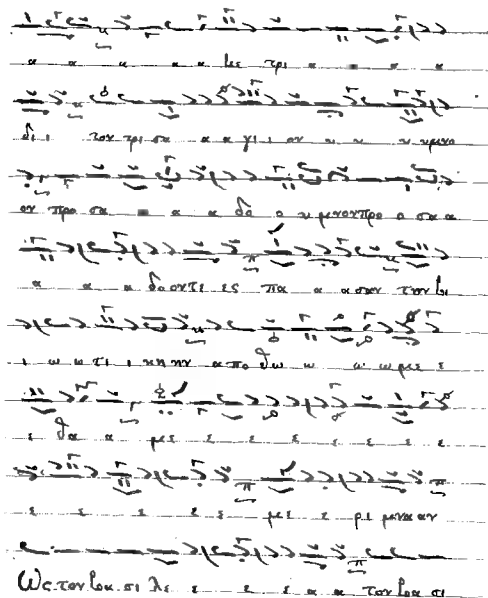 α α α α α με τρι α α α α
δι ι τον τρι σα α α γι ι ον υ υ υ υμνο
ον προ σα α α α δο ο υ μνον προ ο σα α
α α α δο οντε ες πα α α σαν την βι
ι ω ω τι ι κη ην α πο θω ω ω ω με ε ε
ε θα α με ε ε ε ε ε ε ε
ε ε ε ε ε με ε ρι μνα αν
Ως τον βα σι λε ε ε ε α α τον βα σι